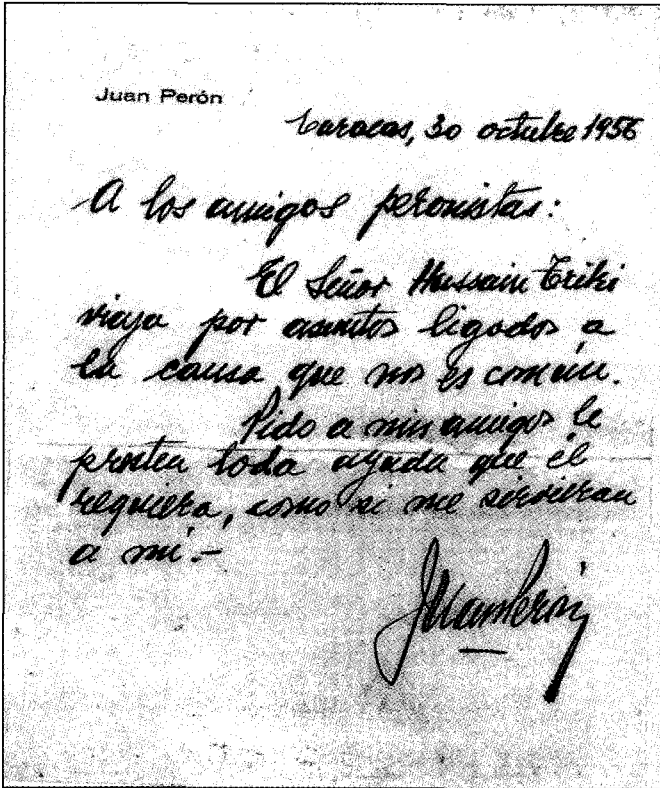 Juan Perón
Caracas, 30 octubre 1956
A los amigos peronistas:
El Señor Hussain Triki
viaja por asuntos ligados a
la causa que nos es común.
Pido a mis amigos le
presten toda ayuda que él
requiera, como si me sirvieran
a mí.-
Juan Perón